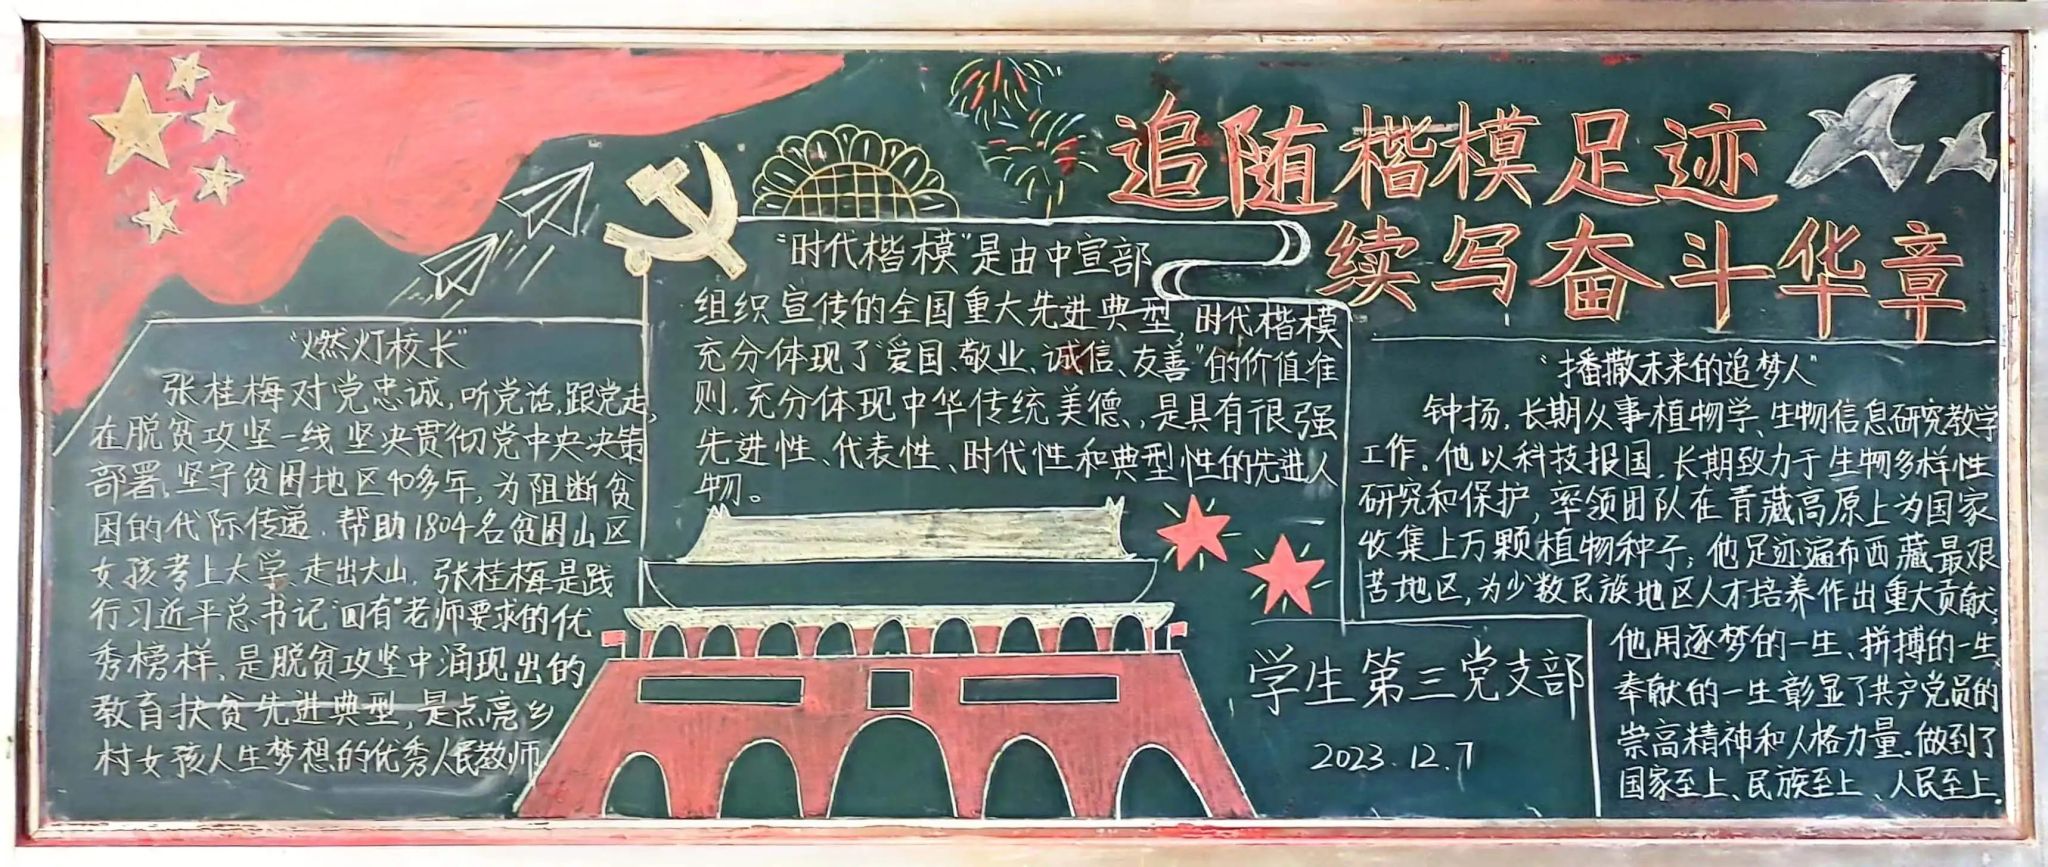 追随楷模足迹
续写奋斗华章
“燃灯校长”
张桂梅对党忠诚,听党话,跟党走,
在脱贫攻坚一线坚决贯彻党中央决策
部署,坚守贫困地区40多年,为阻断贫
困的代际传递,帮助1804名贫困山区
女孩考上大学,走出大山,张桂梅是践
行习近平总书记“四有”老师要求的优
秀榜样,是脱贫攻坚中涌现出的
教育扶贫先进典型,是点亮乡
村女孩人生梦想的优秀人民教师
“时代楷模”是由中宣部
组织宣传的全国重大先进典型,时代楷模
充分体现了“爱国、敬业、诚信、友善”的价值准
则,充分体现中华传统美德,是具有很强
先进性、代表性、时代性和典型性的先进人
物。
“播撒未来的追梦人”
钟扬,长期从事植物学、生物信息研究教学
工作。他以科技报国,长期致力于生物多样性
研究和保护,率领团队在青藏高原上为国家
收集上万颗植物种子;他足迹遍布西藏最艰
苦地区,为少数民族地区人才培养作出重大贡献;
他用逐梦的一生、拼搏的一生、
奉献的一生彰显了共产党员的
崇高精神和人格力量。做到了
国家至上、民族至上、人民至上。
学生第三党支部
2023.12.7